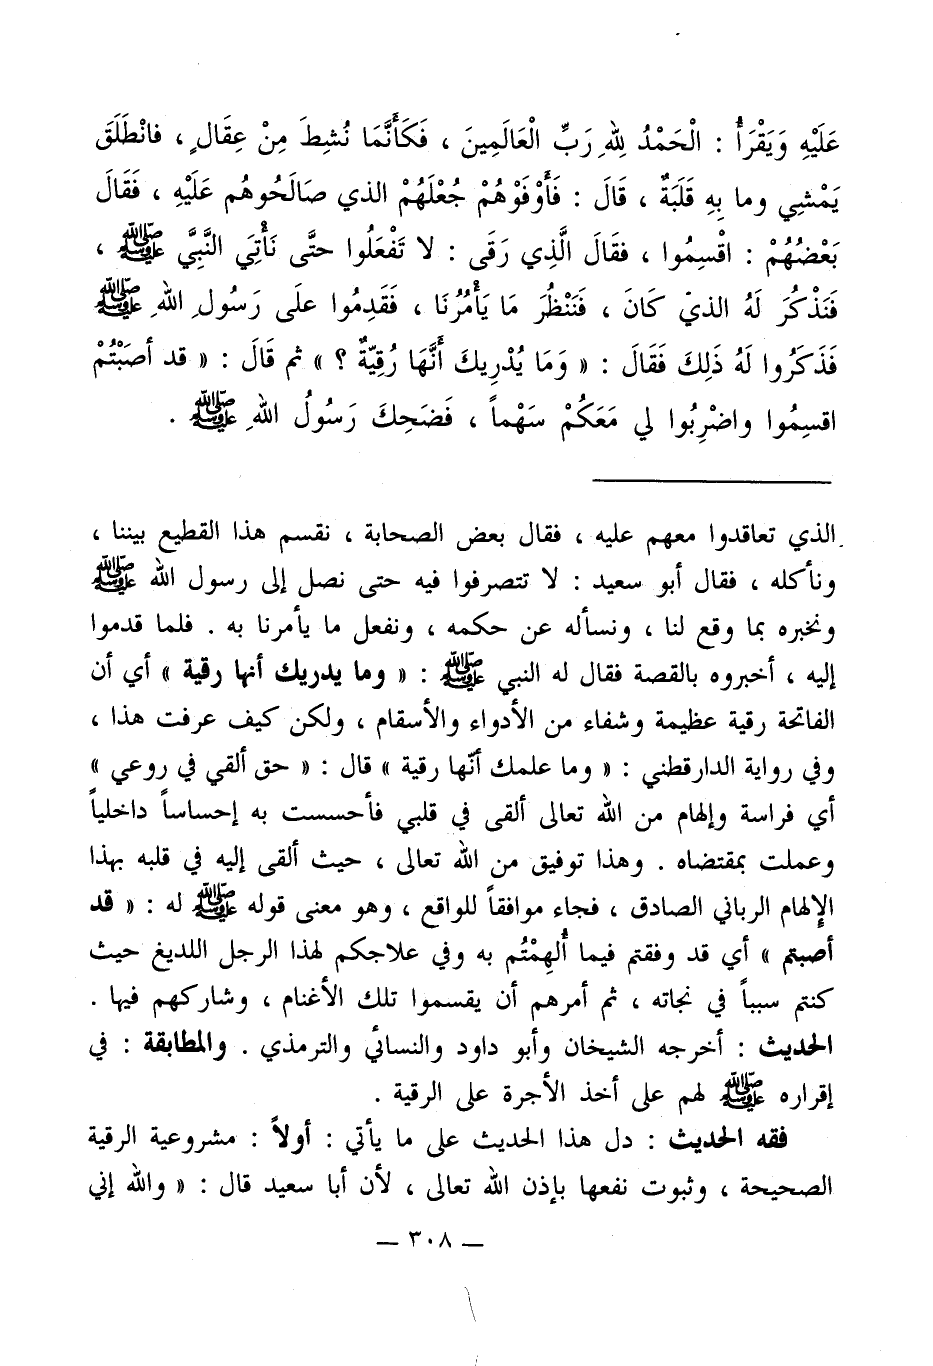 عَلَيْهِ وَيَقْرَأُ : الْحَمْدُ لِلّهِ رَبِّ الْعَالَمِينَ ، فَكَأَنَّمَا نُشِطَ مِنْ عِقَالٍ ، فانْطَلَقَ
يَمْشِي وما بِهِ قَلَبَةٌ ، قَالَ : فَأَوْفَوْهُمْ جُعْلَهُمْ الذي صَالَحُوهُم عَلَيْهِ ، فَقَالَ
بَعْضُهُمْ : اقْسِمُوا ، فقَالَ الَّذِي رَقَى : لا تَفْعَلُوا حتَّى نَأْتِيَ النَّبِيَّ ﷺ ،
فَنَذْكُرَ لَهُ الذيّ كَانَ ، فَنَنْظُرَ مَا يَأْمُرُنَا ، فَقَدِمُوا علَى رَسُولِ اللهِ ﷺ
فَذَكَرُوا لَهُ ذَلِكَ فَقَالَ : « وَمَا يُدْرِيكَ أَنَّهَا رُقِيَّةٌ ؟ » ثم قَالَ : « قد أصَبْتُمْ
اقسِمُوا واضْرِبُوا لي مَعَكُمْ سَهْماً ، فَضَحِكَ رَسُولُ اللهِ ﷺ .
الذي تعاقدوا معهم عليه ، فقال بعض الصحابة ، نقسم هذا القطيع بيننا ،
ونأكله ، فقال أبو سعيد : لا تتصرفوا فيه حتى نصل إلى رسول الله ﷺ
ونخبره بما وقع لنا ، ونسأله عن حكمه ، ونفعل ما يأمرنا به . فلما قدموا
إليه ، أخبروه بالقصة فقال له النبي ﷺ : « وما يدريك أنها رقية » أي أن
الفاتحة رقية عظيمة وشفاء من الأدواء والأسقام ، ولكن كيف عرفت هذا ،
وفي رواية الدارقطني : « وما علمك أنّها رقية » قال : « حق ألقي في روعي »
أي فراسة وإلهام من الله تعالى ألقى في قلبي فأحسست به إحساساً داخلياً
وعملت بمقتضاه . وهذا توفيق من الله تعالى ، حيث ألقى إليه في قلبه بهذا
الإلهام الرباني الصادق ، فجاء موافقاً للواقع ، وهو معنى قوله ﷺ له : « قد
أصبتم » أي قد وفقتم فيما أُلهِمْتُم به وفي علاجكم لهذا الرجل اللديغ حيث
كنتم سبباً في نجاته ، ثم أمرهم أن يقسموا تلك الأغنام ، وشاركهم فيها .
الحديث : أخرجه الشيخان وأبو داود والنسائي والترمذي . والمطابقة : في
إقراره ﷺ لهم على أخذ الأجرة على الرقية .
فقه الحديث : دل هذا الحديث على ما يأتي : أولاً : مشروعية الرقية
الصحيحة ، وثبوت نفعها بإذن الله تعالى ، لأن أبا سعيد قال : « والله إني
— ٣٠٨ —